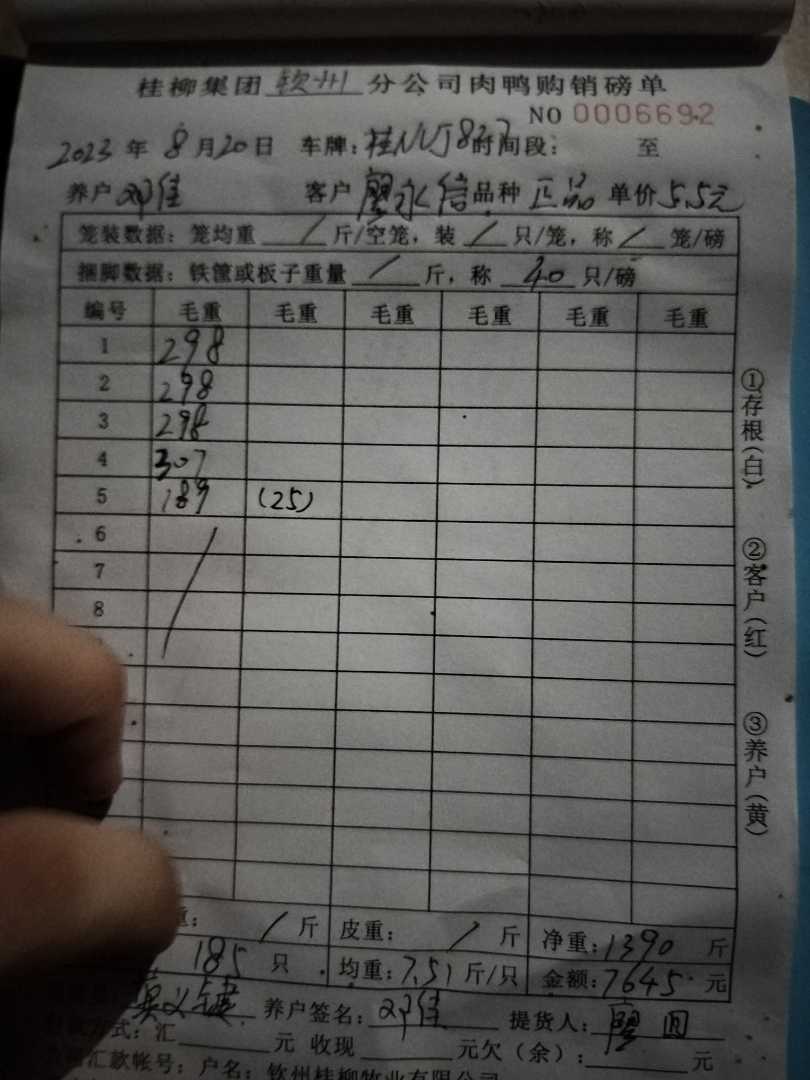 桂柳集团 钦州 分公司肉鸭购销磅单
NO 0006692
2023 年 8 月 20 日 车牌: 时间段: 至
养户 邓佳 客户 廖永信 品种 正品 单价 5.5元
笼装数据: 笼均重 / 斤/空笼, 装 / 只/笼, 称 / 笼/磅
捆脚数据: 铁筐或板子重量 / 斤, 称 40 只/磅
编号 毛重 毛重 毛重 毛重 毛重 毛重
1 298
2 298
3 298
4 307
5 189 (25)
6
7
8
重: / 斤 皮重: / 斤 净重: 1390 斤
185 只 均重: 7.51 斤/只 金额: 7645 元
养户签名: 邓佳 提货人: 廖
方式: 汇 元 收现 元欠(余): 元
汇款帐号: 户名: 钦州桂柳牧业有限公司
①存根(白) ②客户(红) ③养户(黄)